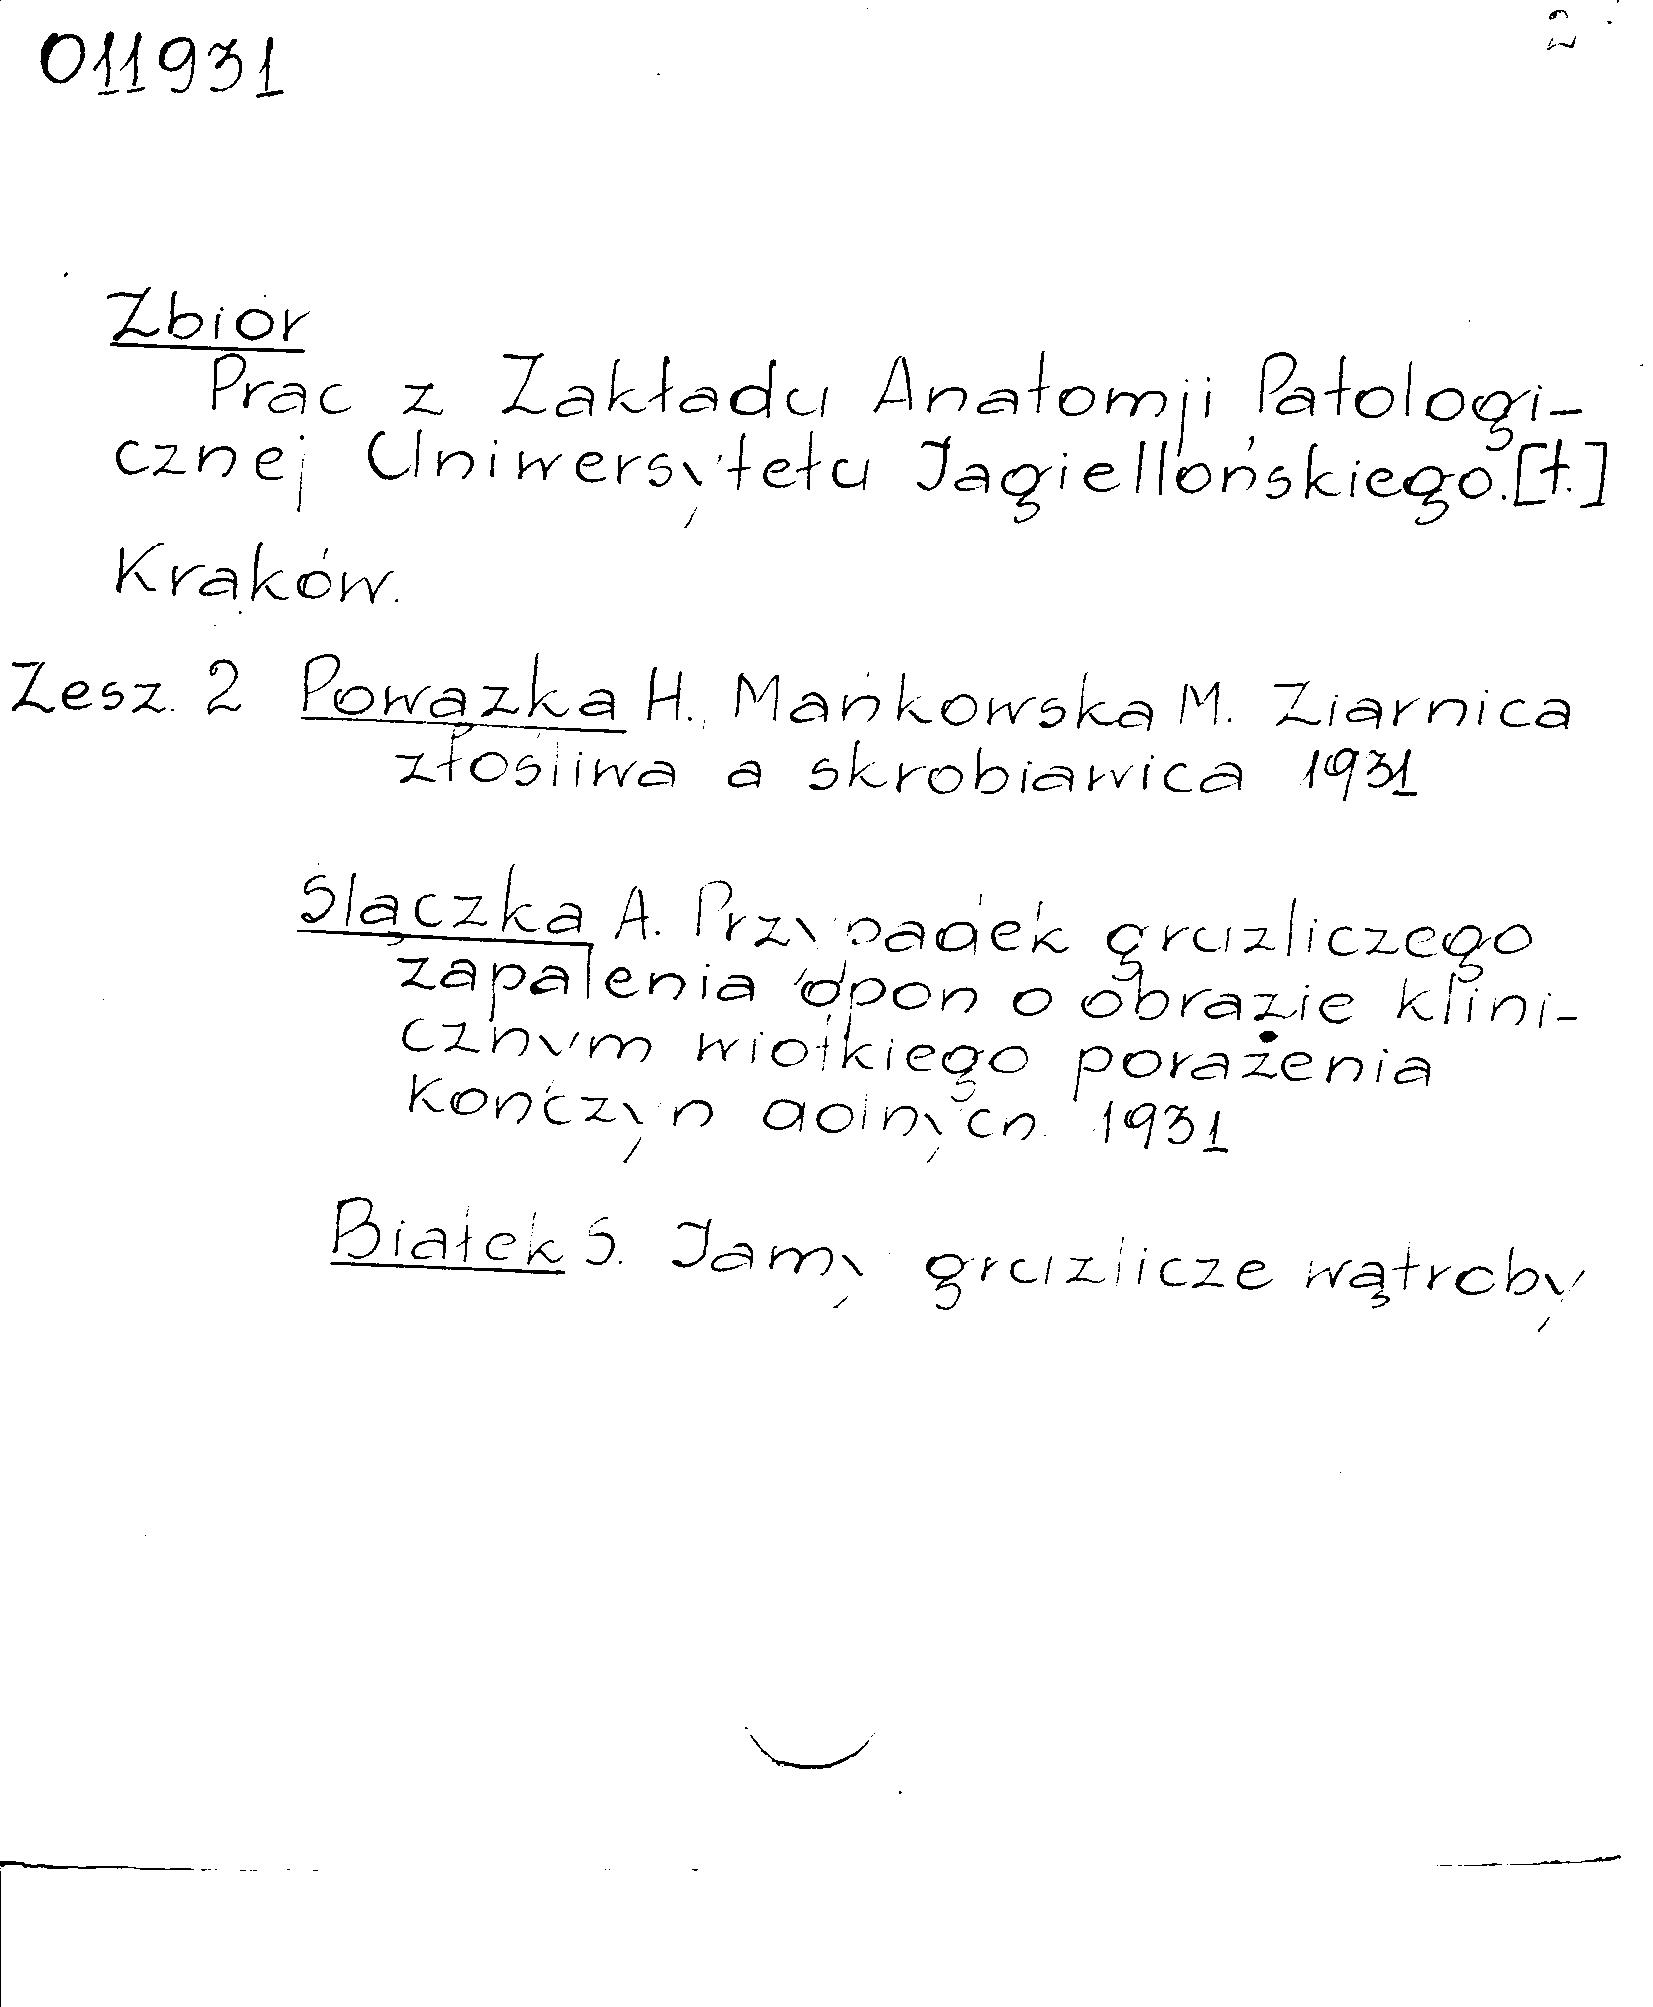 011931
2
Zbiór
Prac z Zakładu Anatomji Patologi-
cznej Uniwersytetu Jagiellońskiego.[t.]
Kraków.
Zesz. 2 Powązka H., Mańkowska M. Ziarnica
złośliwa a skrobiawica 1931
Ślączka A. Przypadek gruźliczego
zapalenia opon o obrazie klini-
cznym wiotkiego porażenia
kończyn dolnych. 1931
Białek S. Jamy gruźlicze wątroby